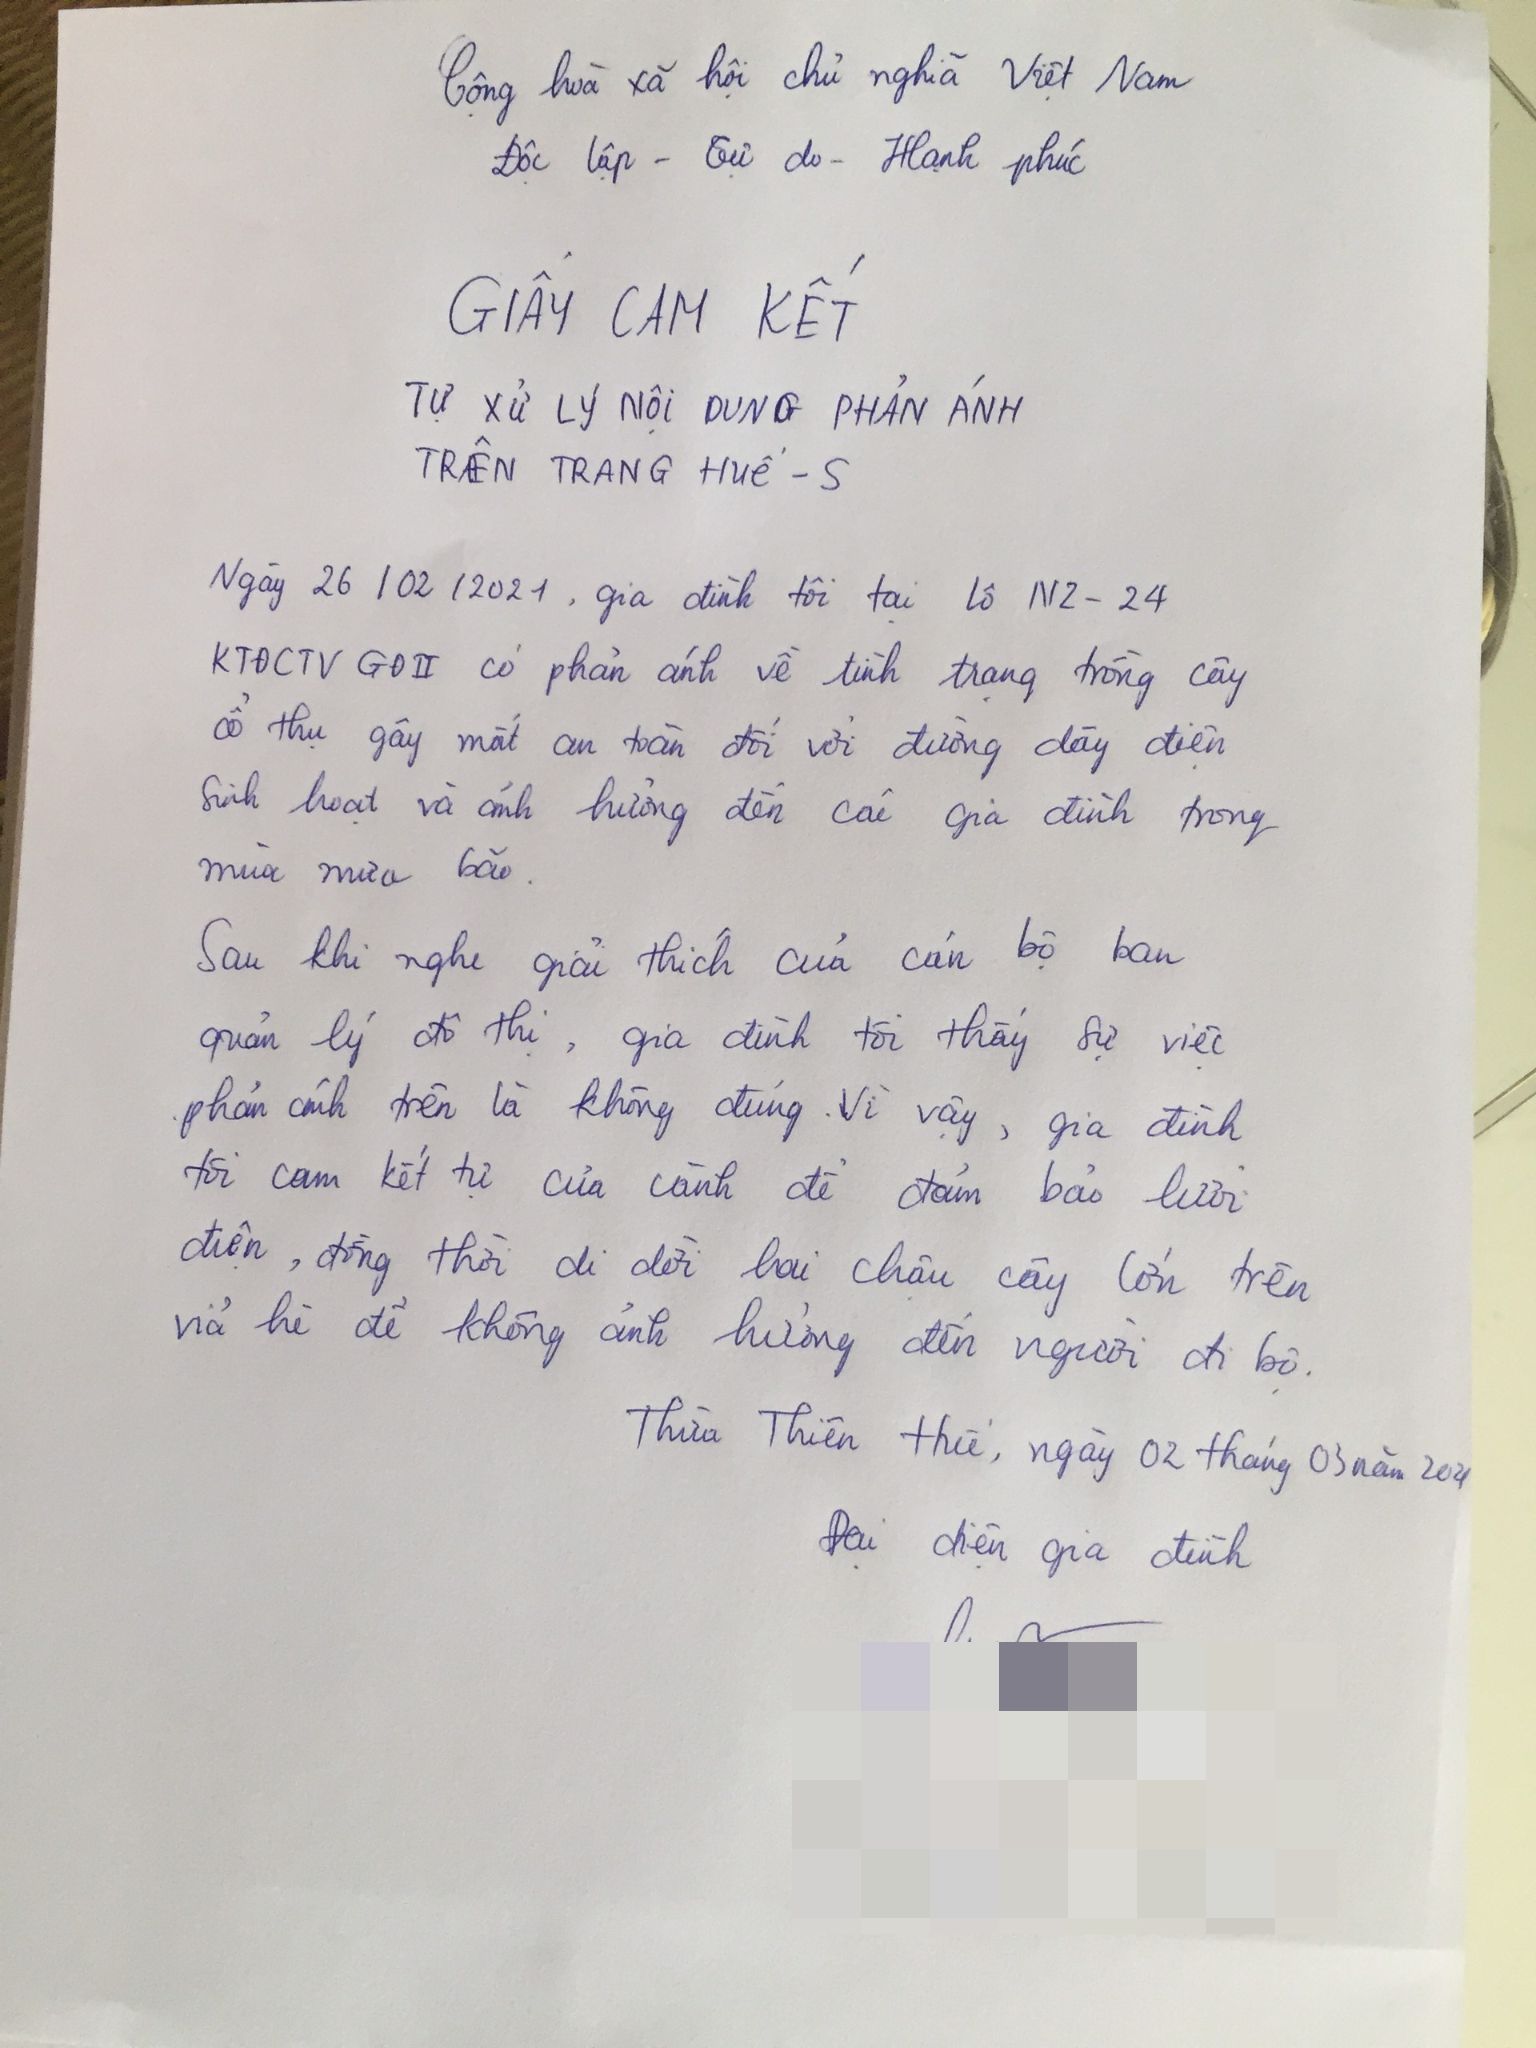 Cộng hoà xã hội chủ nghĩa Việt Nam
Độc lập - Tự do - Hạnh phúc
GIẤY CAM KẾT
TỰ XỬ LÝ NỘI DUNG PHẢN ÁNH
TRÊN TRANG HUẾ - S
Ngày 26/02/2021, gia đình tôi tại lô N2-24
KTĐCTV GĐII có phản ánh về tình trạng trồng cây
cổ thụ gây mất an toàn đối với đường dây điện
sinh hoạt và ảnh hưởng đến các gia đình trong
mùa mưa bão.
Sau khi nghe giải thích của cán bộ ban
quản lý đô thị, gia đình tôi thấy sự việc
phản ánh trên là không đúng. Vì vậy, gia đình
tôi cam kết tự cưa cành để đảm bảo lưới
điện, đồng thời di dời hai chậu cây lớn trên
vỉa hè để không ảnh hưởng đến người đi bộ.
Thừa Thiên Huế, ngày 02 tháng 03 năm 2021
Đại diện gia đình